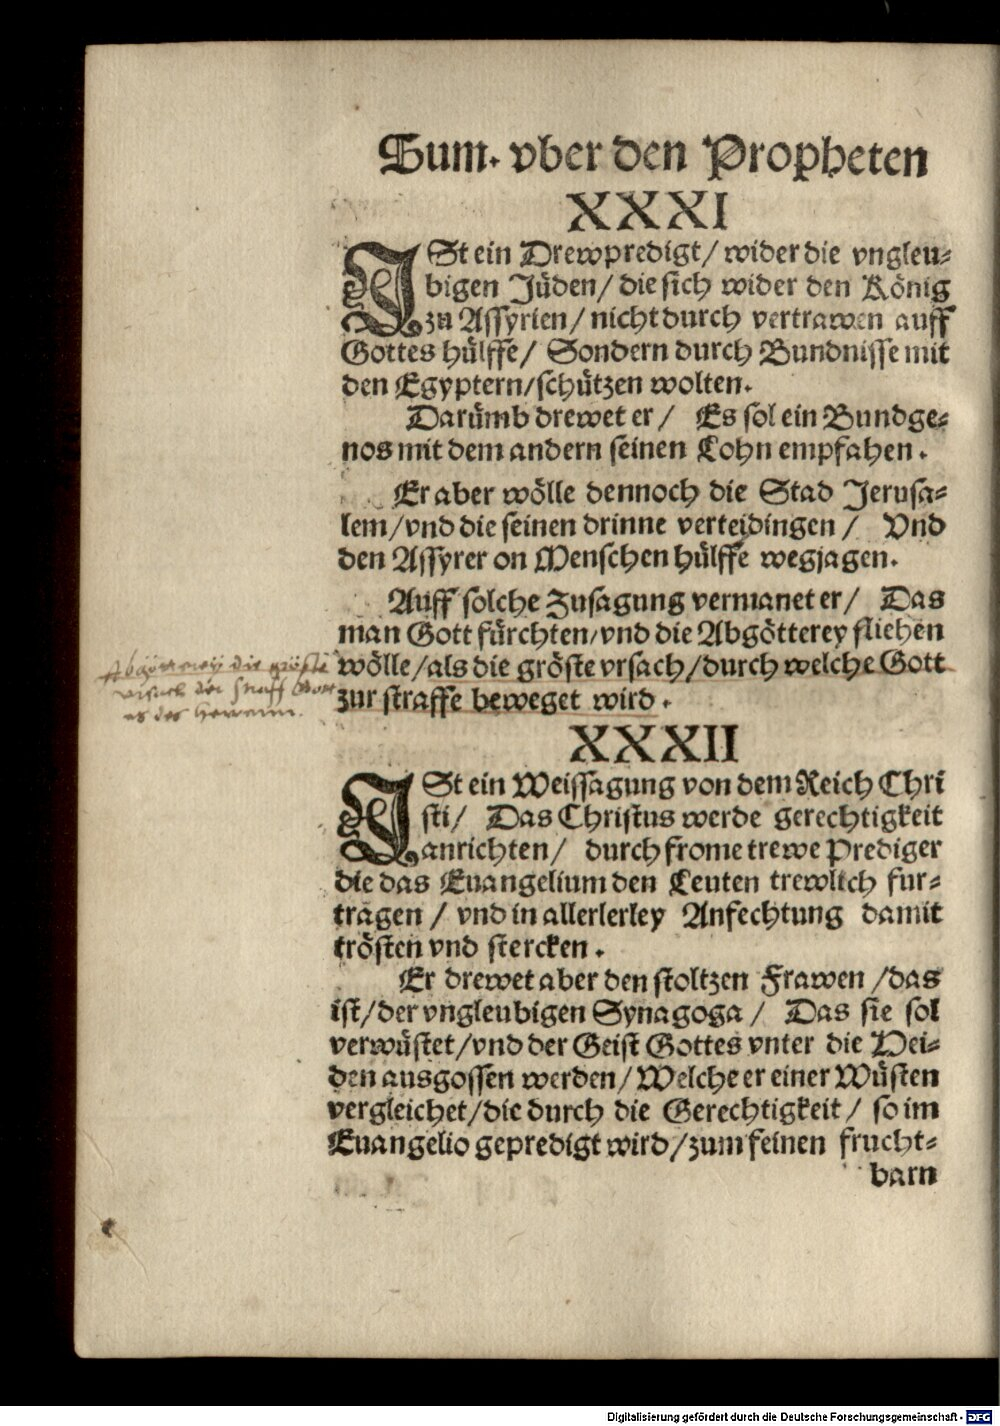 Sum. vber den Propheten
XXXI
ISt ein Drewpredigt/ wider die vngleu-
bigen Jüden/ die sich wider den König
zu Assyrien/ nicht durch vertrawen auff
Gottes hülffe/ Sondern durch Bundnisse mit
den Egyptern/schützen wolten.
Darümb drewet er/ Es sol ein Bundge-
nos mit dem andern seinen Lohn empfahen.
Er aber wölle dennoch die Stad Jerusa-
lem/vnd die seinen drinne verteidingen/ Vnd
den Assyrer on Menschen hülffe wegjagen.
Auff solche Zusagung vermanet er/ Das
man Gott fürchten/vnd die Abgötterey fliehen
wölle/als die gröste vrsach/durch welche Gott
zur straffe beweget wird.
Abgötterey die gröste
vrsach der straff Gott
es des Herenn.
XXXII
ISt ein Weissagung von dem Reich Chri
sti/ Das Christus werde gerechtigkeit
anrichten/ durch frome trewe Prediger
die das Euangelium den Leuten trewlich fur-
tragen/ vnd in allerlerley Anfechtung damit
trösten vnd stercken.
Er drewet aber den stoltzen Frawen/das
ist/der vngleubigen Synagoga/ Das sie sol
verwüstet/vnd der Geist Gottes vnter die Hei-
den ausgossen werden/Welche er einer Wüsten
vergleichet/die durch die Gerechtigkeit/ so im
Euangelio gepredigt wird/zum feinen frucht-
barn
Digitalisierung gefördert durch die Deutsche Forschungsgemeinschaft - DFG